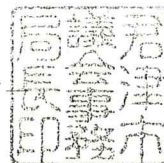 君津市
議会事務
局長印